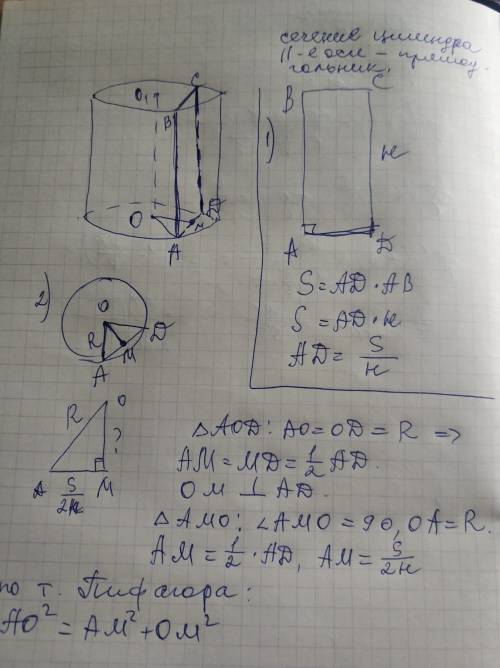 сечение цилиндра
||-е оси – прямоу-
гольник.
O₁
C
B
O
M
D
A
1)
B
C
H
A
D
S = AD · AB
S = AD · H
AD = S/H
2)
O
R
D
M
A
R
O
?
A
S/2H
M
△AOD: AO = OD = R =>
AM = MD = 1/2 AD.
OM ⊥ AD.
△AMO: ∠AMO = 90, OA = R.
AM = 1/2 · AD, AM = S/2H
по т. Пифагора:
AO² = AM² + OM²